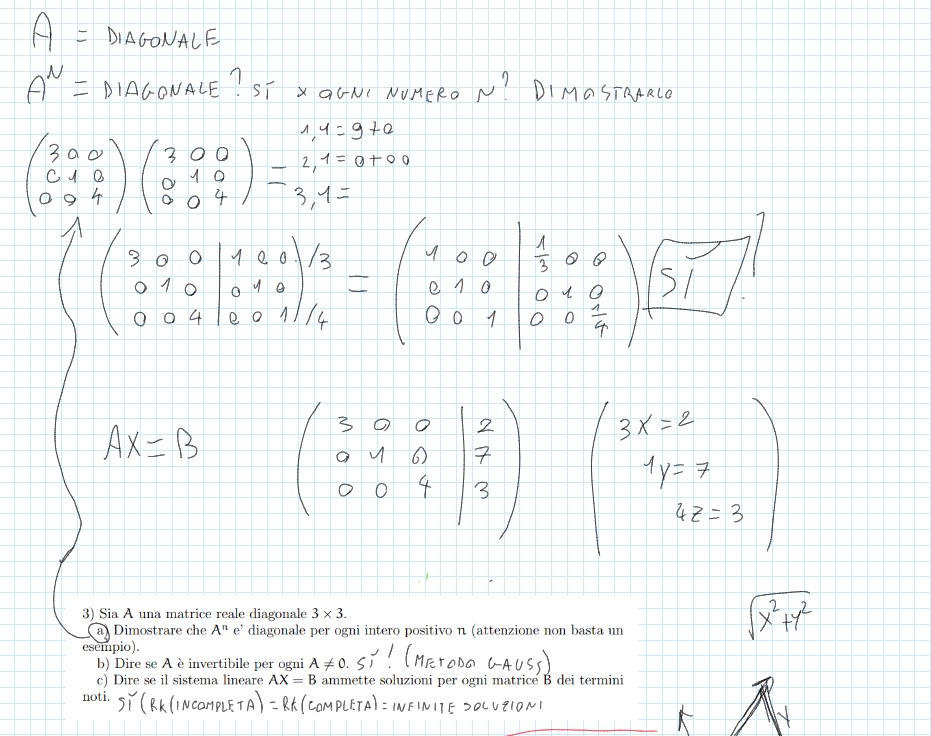 A = DIAGONALE
A^N = DIAGONALE? SÌ x OGNI NUMERO N? DIMOSTRARLO
1,1 = 9+0
(3 0 0) (3 0 0)
2,1 = 0+00
(0 1 0) (0 1 0) =
(0 0 4) (0 0 4)
3,1 =
(3 0 0 | 1 0 0) /3 (1 0 0 | 1/3 0 0)
(0 1 0 | 0 1 0) = (0 1 0 | 0 1 0) SÌ?
(0 0 4 | 0 0 1) /4 (0 0 1 | 0 0 1/4)
(3 0 0 | 2) (3X = 2)
AX = B (0 1 0 | 7) (1Y = 7)
(0 0 4 | 3) (4Z = 3)
3) Sia A una matrice reale diagonale 3 × 3.
a) Dimostrare che Aⁿ e' diagonale per ogni intero positivo n (attenzione non basta un
esempio).
b) Dire se A è invertibile per ogni A ≠ 0. SÌ! (METODO GAUSS)
c) Dire se il sistema lineare AX = B ammette soluzioni per ogni matrice B dei termini
noti. SÌ (RK(INCOMPLETA) = RK(COMPLETA) = INFINITE SOLUZIONI
√(X²+Y²)